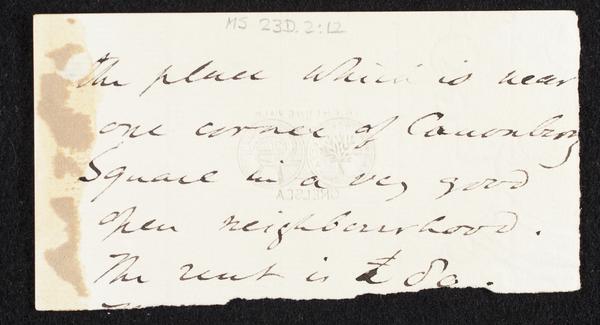 MS 23D.2:12
the place which is near
one corner of Canonberg
Square in a very good
open neighbourhood.
The rent is £80.